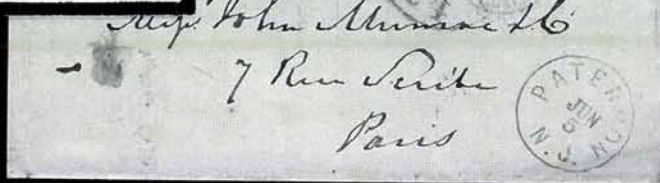 Messrs John Munroe & Co
7 Rue Scribe
Paris
PATERSON
JUN
5
N.J.